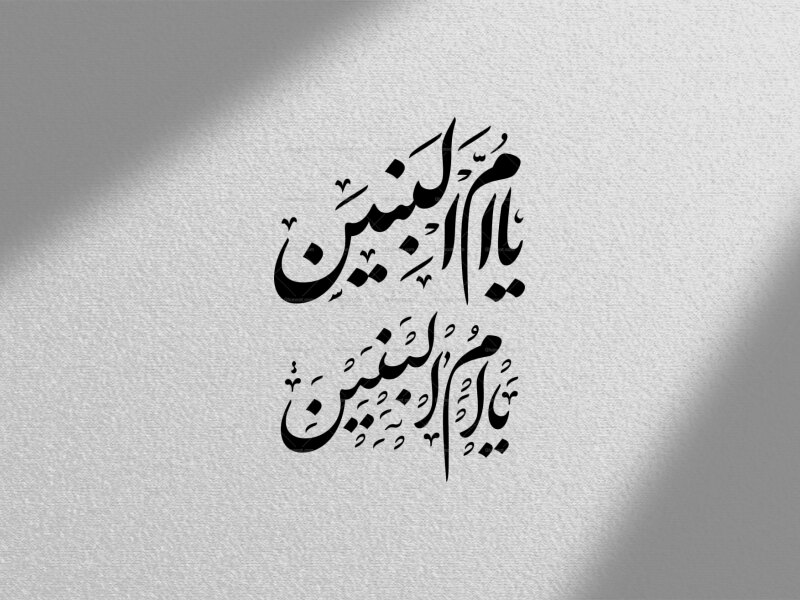 يا امُّ البَنِينَ
يا امُ البنين